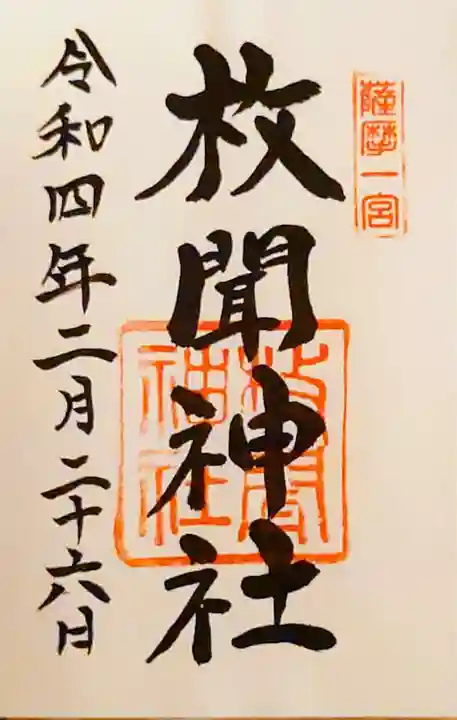 薩摩一宮
枚聞神社
枚聞神社
令和四年二月二十六日